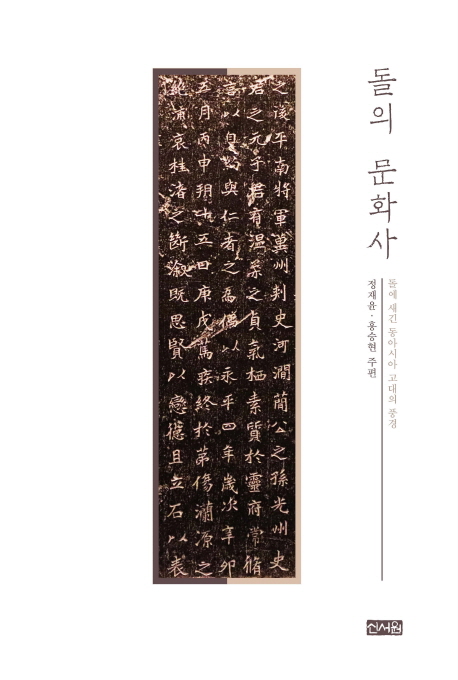 돌의 문화사
돌에 새긴 동아시아 고대의 풍경
정재윤·홍승현 주편
之後平南將軍冀州刺史河澗簡公之孫光州史
君之元子君有溫柔之貞氣栖素質於靈府常脩
言以自公與仁者之爲偶以永平四年歲次辛卯
五月丙申朔十五日庚戌篤疾終於第傷瀾源之
絶浦哀桂渚之斷漵既思賢以戀德且立石以表
신서원